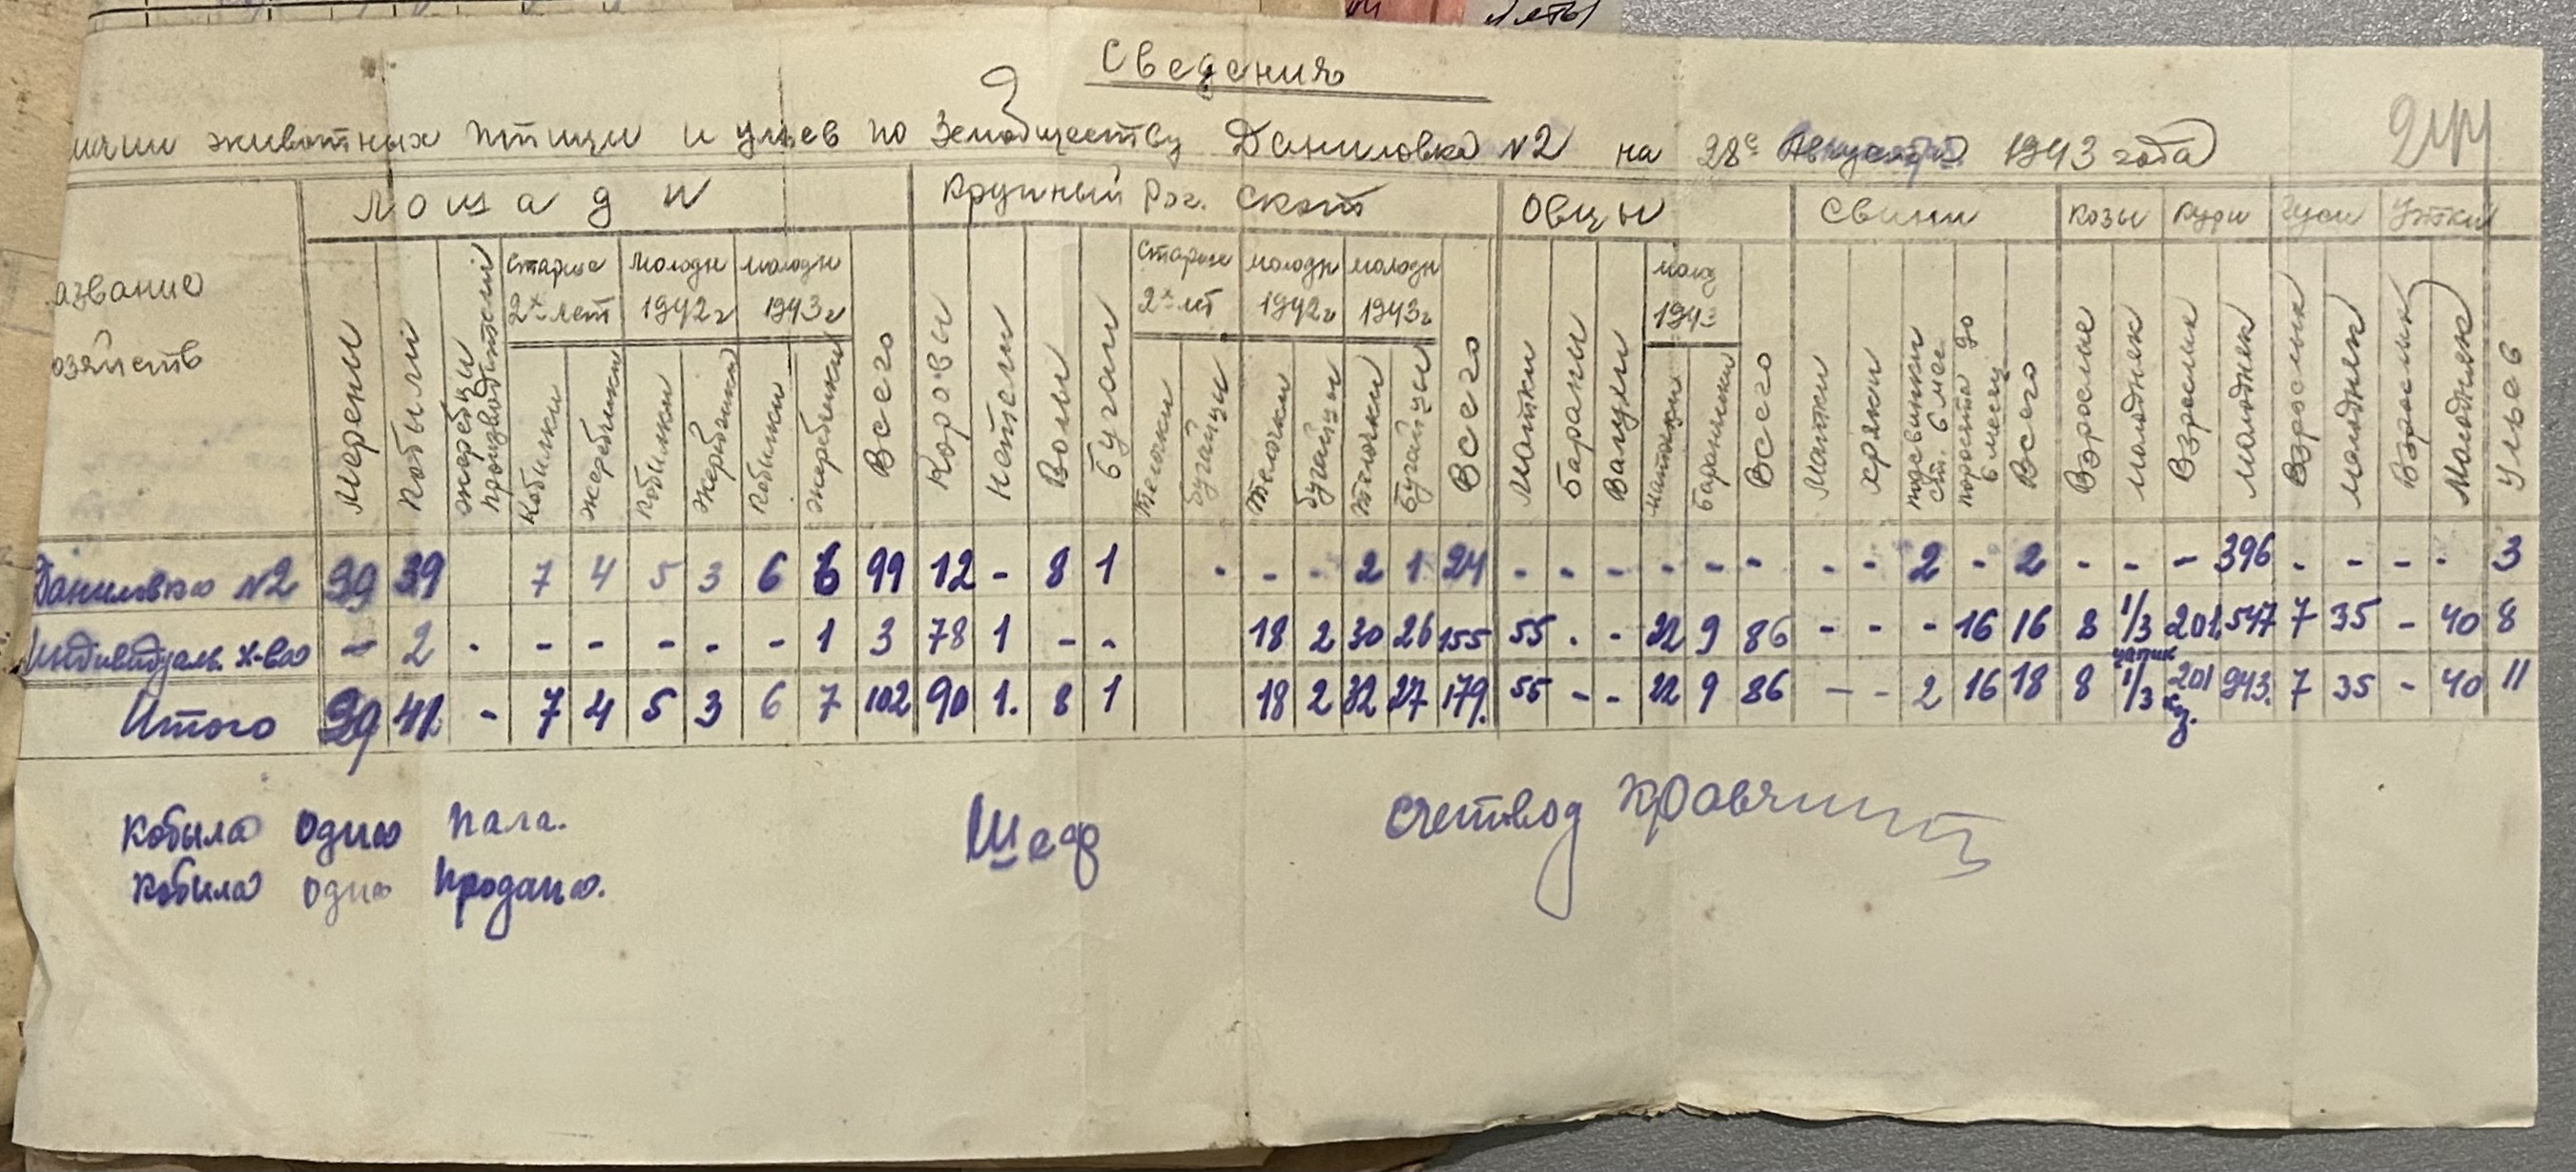 Сведения
животных птицы и ульев по Земобществу Даниловка №2 на 28е Августа 1943 года
Лошади Крупный Рог. Скот Овцы Свини Козы Кури Гуси Утки
азвание
озяйств
Старше 2х лет молодн 1942г молодн 1943г Старше 2х лет молодн 1942г молодн 1943г молод 1943
Мерены Кобылы жеребцы производители Кобилки жеребчики Кобилки Жеребчики Кобилки жеребчики Всего Коровы Нетели Волы Бугаи Телочки бугайцы Телочки бугайцы телочки Бугайцы Всего Матки Бараны Валухи Баранчики Всего Матки хряки подсвинки ст. 6 мес поросята до 6 месяц Всего Взрослые молодняк Взрослих молодняк Взрослых молодняк Взрослих Молодняк Ульев
Даниловка №2 39 7 4 5 3 6 6 99 12 - 8 1 - - - 2 1 24 - - - - - - - - 2 - 2 - - - 396 - - - - 3
Индивидуаль. х-ва - 2 - - - - - - 1 3 78 1 - - 18 2 30 26 155 55 . - 22 9 86 - - - 16 16 8 1/3 201 547 7 35 - 40 8
Итого - 7 4 5 3 6 7 102 90 1. 8 1 18 2 32 27 179. 55 - - 22 9 86 - - 2 16 18 8 1/3 201 943. 7 35 - 40 11
Кобыла одна пала.
Кобила одна продана.
счетовод